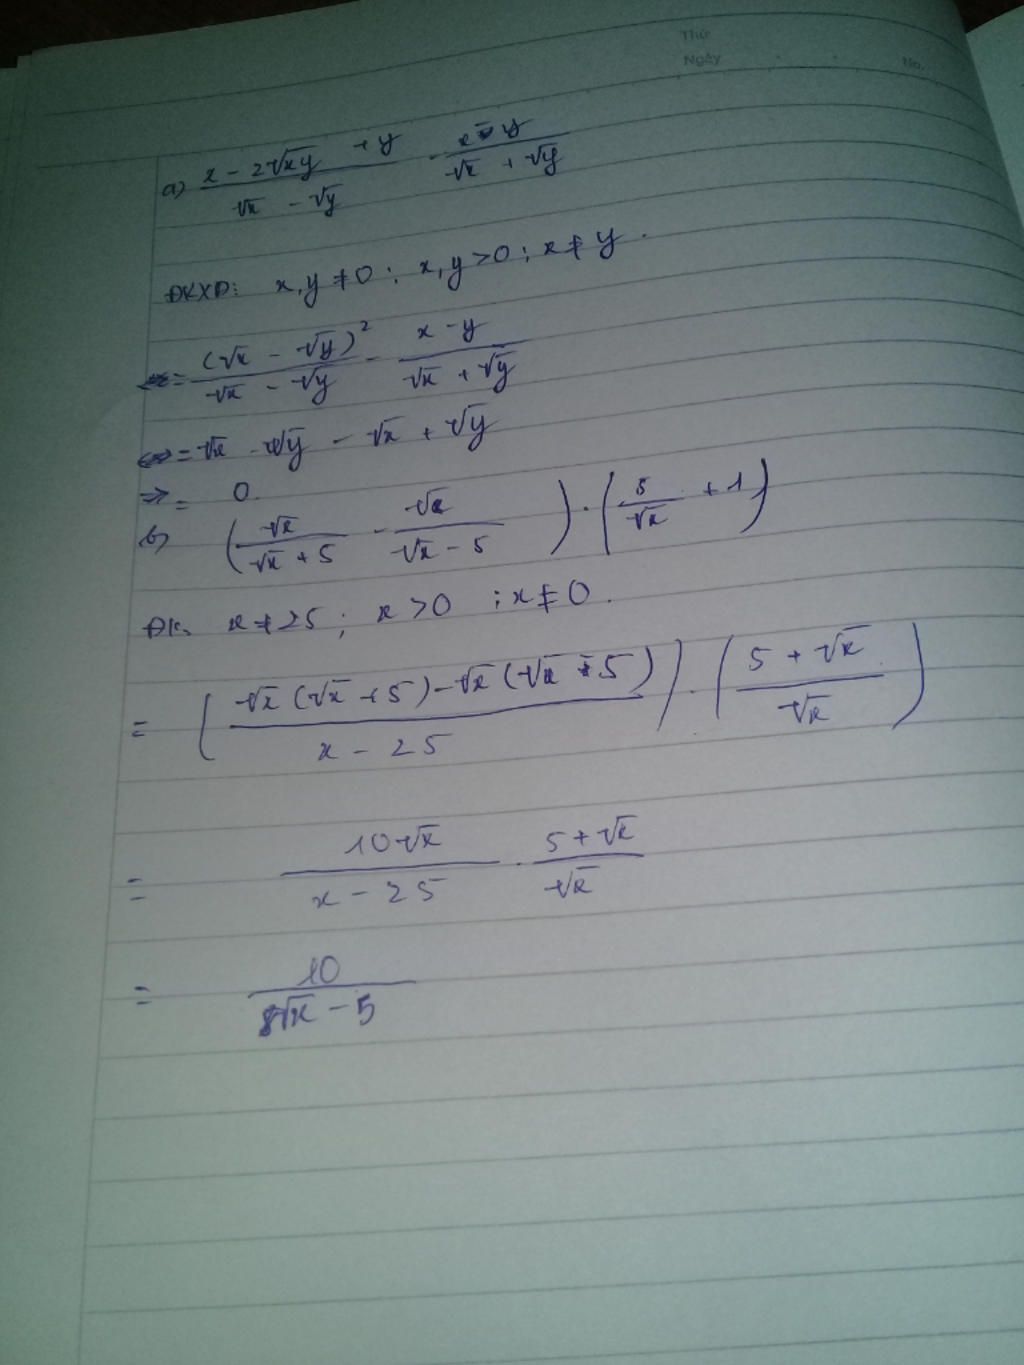 Thứ
Ngày No.
a) (x - 2√xy + y)/(√x - √y) - (x - y)/(√x + √y)
ĐKXĐ: x,y ≠ 0 ; x,y > 0 ; x ≠ y .
= (√x - √y)²/(√x - √y) - (x - y)/(√x + √y)
= √x - √y - √x + √y
= 0.
b) (√x/(√x + 5) - √x/(√x - 5)) . (5/√x + 1)
ĐK: x ≠ 25 ; x > 0 ; x ≠ 0 .
= ((√x (√x + 5) - √x (√x - 5))/(x - 25)) . ((5 + √x)/√x)
= 10√x/(x - 25) . (5 + √x)/√x
= 10/(√x - 5)